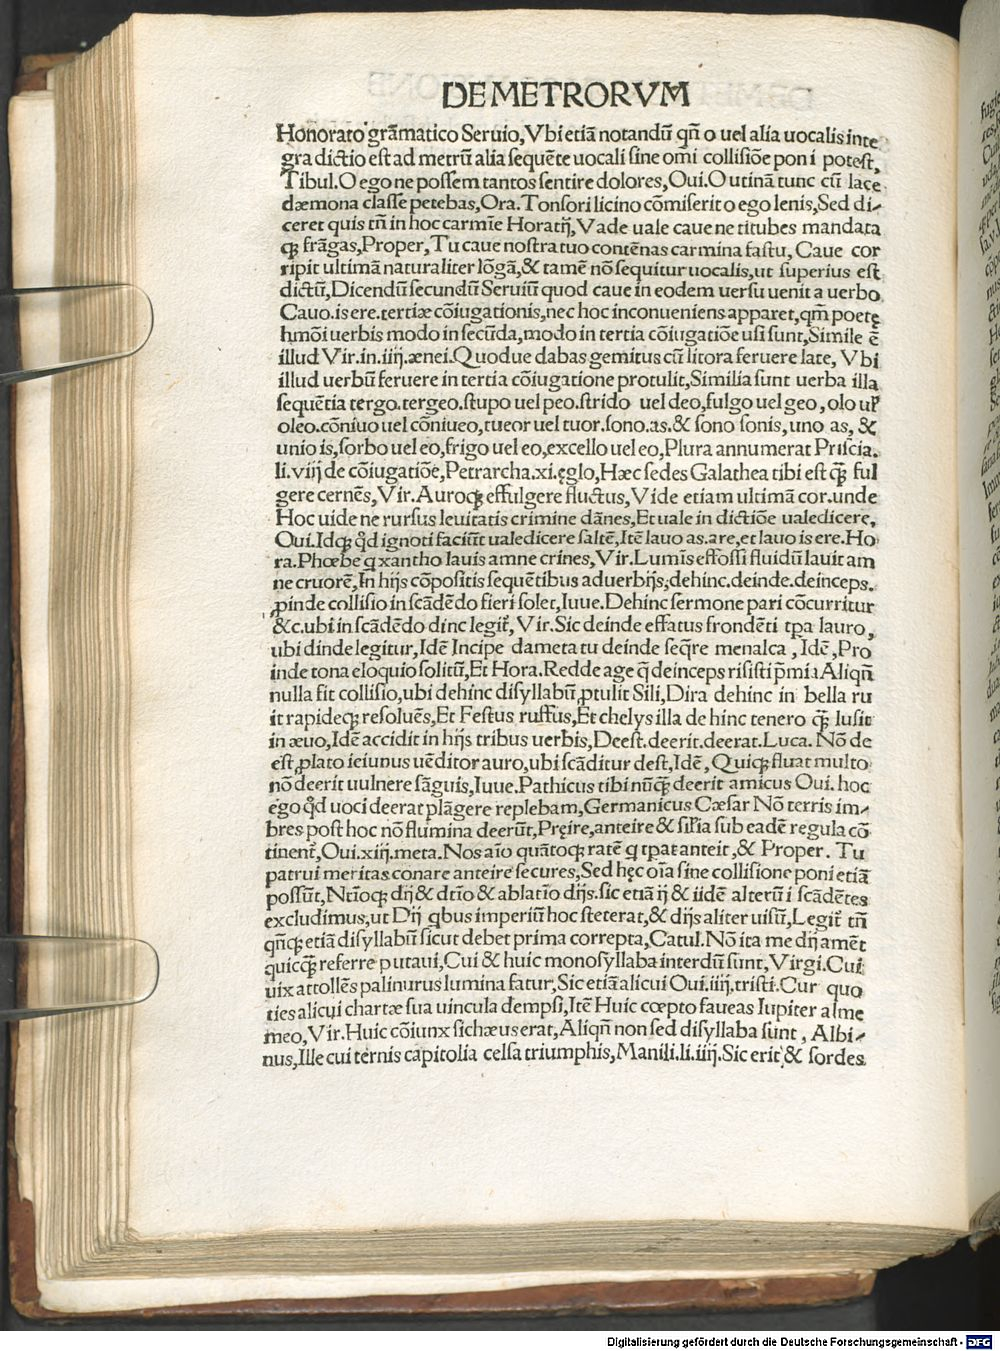 DE METRORVM
Honorato grãmatico Seruio,Vbi etiã notandũ qñ o uel alia uocalis inte
gra dictio est ad metrũ alia sequẽte uocali sine omi collisiõe poni potest,
Tibul.O ego ne possem tantos sentire dolores,Oui.O utinã tunc cũ lace
dæmona classe petebas,Ora.Tonsori licino cõmiserit o ego lenis,Sed di-
ceret quis tñ in hoc carmĩe Horatij,Vade uale caue ne titubes mandata
qꝫ frãgas,Proper,Tu caue nostra tuo contẽnas carmina fastu,Caue cor
ripit ultimã naturaliter lõgã,& tamẽ nõ sequitur uocalis,ut superius est
dictũ,Dicendũ secundũ Seruiũ quod caue in eodem uersu uenit a uerbo
Cauo.is ere.tertiæ cõiugationis,nec hoc inconueniens apparet,qm̃ poetę
hmõi uerbis modo in secũda,modo in tertia cõiugatiõe usi sunt,Simile ẽ
illud Vir.in.iiij.ænei.Quod ue dabas gemitus cũ litora feruere late, Vbi
illud uerbũ feruere in tertia cõiugatione protulit,Similia sunt uerba illa
sequẽtia tergo.tergeo.stupo uel peo.strido uel deo,fulgo uel geo,olo uł
oleo.cõniuo uel cõniueo,tueor uel tuor.sono.as.& sono sonis,uno as, &
unio is,sorbo uel eo,frigo uel eo,excello uel eo,Plura annumerat Priscia.
li.viij de cõiugatiõe,Petrarcha.xi.ęglo,Hæc sedes Galathea tibi est qꝫ ful
gere cernẽs,Vir.Auroqꝫ effulgere fluctus,Vide etiam ultimã cor.unde
Hoc uide ne rursus leuitatis crimine dãnes,Et uale in dictiõe ualedicere,
Oui.Idqꝫ qđ ignoti faciũt ualedicere saltẽ,Itẽ lauo as.are,et lauo is ere.Ho
ra.Phœbe q xantho lauis amne crines,Vir.Lumĩs effossi fluidũ lauit am
ne cruorẽ,In hijs cõpositis sequẽtibus aduerbijs;dehinc.deinde.deinceps.
ꝓinde collisio in scãdẽdo fieri solet,Iuue.Dehinc sermone pari cõcurritur
&c.ubi in scãdẽdo dinc legit᷑,Vir.Sic deinde effatus frondẽti tpa lauro,
ubi dinde legitur,Idẽ Incipe dameta tu deinde seq̃re menalca,Idẽ,Pro
inde tona eloquio solitũ,Et Hora.Redde age q̃ deinceps risisti p̃mia Aliqñ
nulla fit collisio,ubi dehinc disyllabũ ꝓtulit Sili,Dira dehinc in bella ru
it rapideqꝫ resoluẽs,Et Festus ruffus,Et chelys illa de hinc tenero qꝫ lusit
in æuo,Idẽ accidit in hijs tribus uerbis,Deest.deerit.deerat.Luca. Nõ de
est ꝓlato ieiunus uẽditor auro,ubi scãditur dest,Idẽ,Quiqꝫ fluat multo
nõ deerit uulnere sãguis,Iuue.Pathicus tibi nũqꝫ deerit amicus Oui.hoc
ego qđ uoci deerat plãgere replebam,Germanicus Cæsar Nõ terris im-
bres post hoc nõ flumina deerũt,Pręire,anteire & siłia sub eadẽ regula cõ
tinent᷑,Oui.xiij.meta.Nos aĩo quãtoqꝫ ratẽ q tpat anteit,& Proper. Tu
patrui meritas conare anteire secures,Sed hęc oĩa sine collisione poni etiã
possũt,Ntĩoqꝫ dij & dtĩo & ablatĩo dijs.sic etiã ij & iidẽ alterũ i scãdẽtes
excludimus,ut Dij qbus imperiũ hoc steterat,& dijs aliter uisũ,Legit᷑ tñ
qñqꝫ etiã disyllabũ sicut debet prima correpta,Catul.Nõ ita me dij amẽt
quicqꝫ referre putaui,Cui & huic monosyllaba interdũ sunt,Virgi.Cui
uix attollẽs palinurus lumina fatur,Sic etiã alicui Oui.iiij.tristi.Cur quo
ties alicui chartæ sua uincula dempsi,Itẽ Huic cœpto faueas Iupiter alme
meo,Vir.Huic cõiunx sichæus erat,Aliqñ non sed disyllaba sũnt, Albi-
nus,Ille cui ternis capitolia celsa triumphis,Manili.li.iiij.Sic erit & sordes
Digitalisierung gefördert durch die Deutsche Forschungsgemeinschaft - DFG